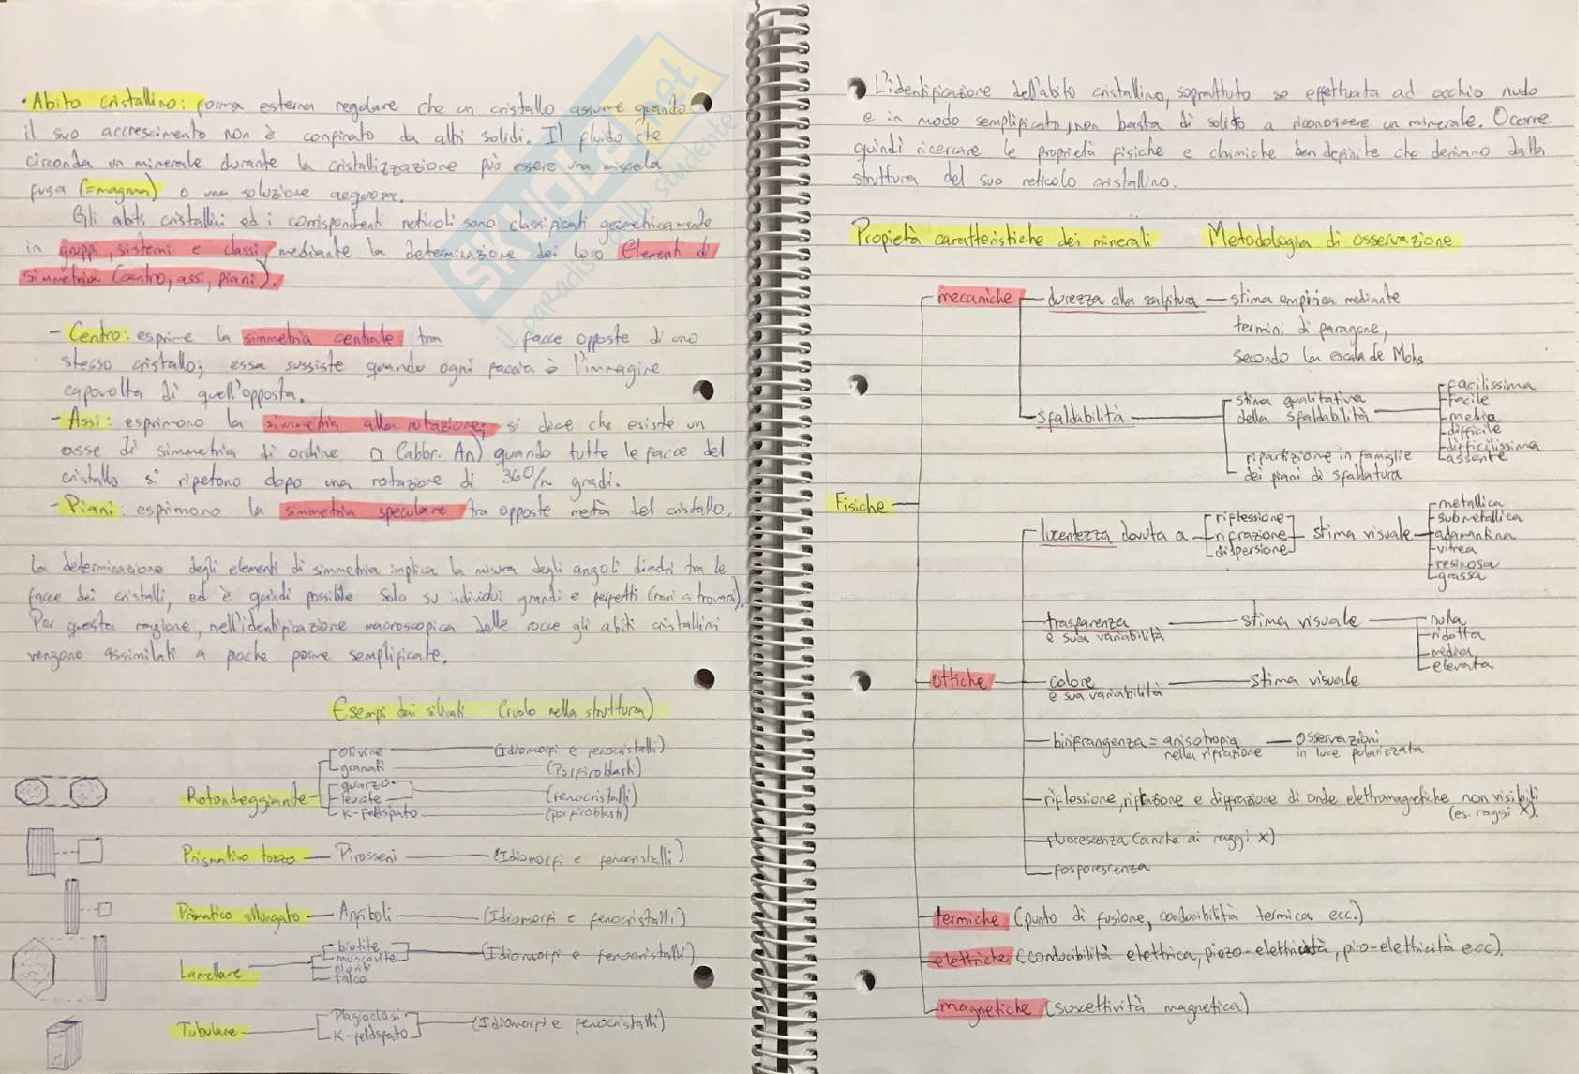 • Abito cristallino: forma esterna regolare che un cristallo assume quando
il suo accrescimento non è confinato da altri solidi. Il fluido che
circonda un minerale durante la cristallizzazione può essere una miscela
fusa (=magma) o una soluzione acquosa.
Gli abiti cristallini ed i corrispondenti reticoli sono classificati geometricamente
in gruppi, sistemi e classi, mediante la determinazione dei loro Elementi di
simmetria (centro, assi, piani).
- Centro: esprime la simmetria centrale tra facce opposte di uno
stesso cristallo; essa sussiste quando ogni faccia è l'immagine
capovolta di quell'opposta.
- Assi: esprimono la simmetria alla rotazione; si dice che esiste un
asse di simmetria di ordine n (abbr. An) quando tutte le facce del
cristallo si ripetono dopo una rotazione di 360/n gradi.
- Piani: esprimono la simmetria speculare tra opposte metà del cristallo.
La determinazione degli elementi di simmetria implica la misura degli angoli diedri tra le
facce dei cristalli, ed è quindi possibile solo su individui grandi e perfetti (rari a trovarsi).
Per questa ragione, nell'identificazione macroscopica delle rocce gli abiti cristallini
vengono assimilati a poche forme semplificate.
Esempi dai silicati (ruolo nella struttura)
Olivine (Idiomorfi e fenocristalli)
granati (Porfiroblasti)
Rotondeggiante quarzo
leucite (fenocristalli)
K-feldspato (porfiroblasti)
Prismatico tozzo - Pirosseni (Idiomorfi e fenocristalli)
Prismatico allungato - Anfiboli (Idiomorfi e fenocristalli)
Lamellare biotite
muscovite (Idiomorfi e fenocristalli)
clorit
talco
Tubulare Plagioclasi
K-feldspato (Idiomorfi e fenocristalli)
L'identificazione dell'abito cristallino, soprattuto se effettuata ad occhio nudo
e in modo semplificato, non basta di solito a riconoscere un minerale. Ocorre
quindi ricercare le proprietà fisiche e chimiche ben definite che derivano dalla
struttura del suo reticolo cristallino.
Propietà caratteristiche dei minerali Metodologia di osservazione
Fisiche
mecaniche durezza alla scalfitura - stima empirica mediante
termini di paragone,
secondo la escala de Mohs
sfaldabilità stima qualitativa
della sfaldabilità facilissima
facile
media
difficile
difficilissima
assente
ripartizione in famiglie
dei piani di sfaldatura
ottiche
lucentezza dovuta a riflessione
rifrazione
dispersione stima visuale metallica
submetallica
adamantina
vitrea
resinosa
grassa
trasparenza
e sua variabilità stima visuale nulla
ridotta
media
elevata
colore
e sua variabilità stima visuale
birifrangenza = anisotropia
nella rifrazione - osservazioni
in luce polarizzata
riflessione, rifrazione e diffrazione di onde elettromagnetiche non visibili
(es. raggi X).
fluorescenza (anche ai raggi X)
fosforescenza
termiche (punto di fusione, conducibilità termica ecc.)
elettriche (conducibilità elettrica, piezo-elettricità, piro-elettricità ecc).
magnetiche (suscettività magnetica)